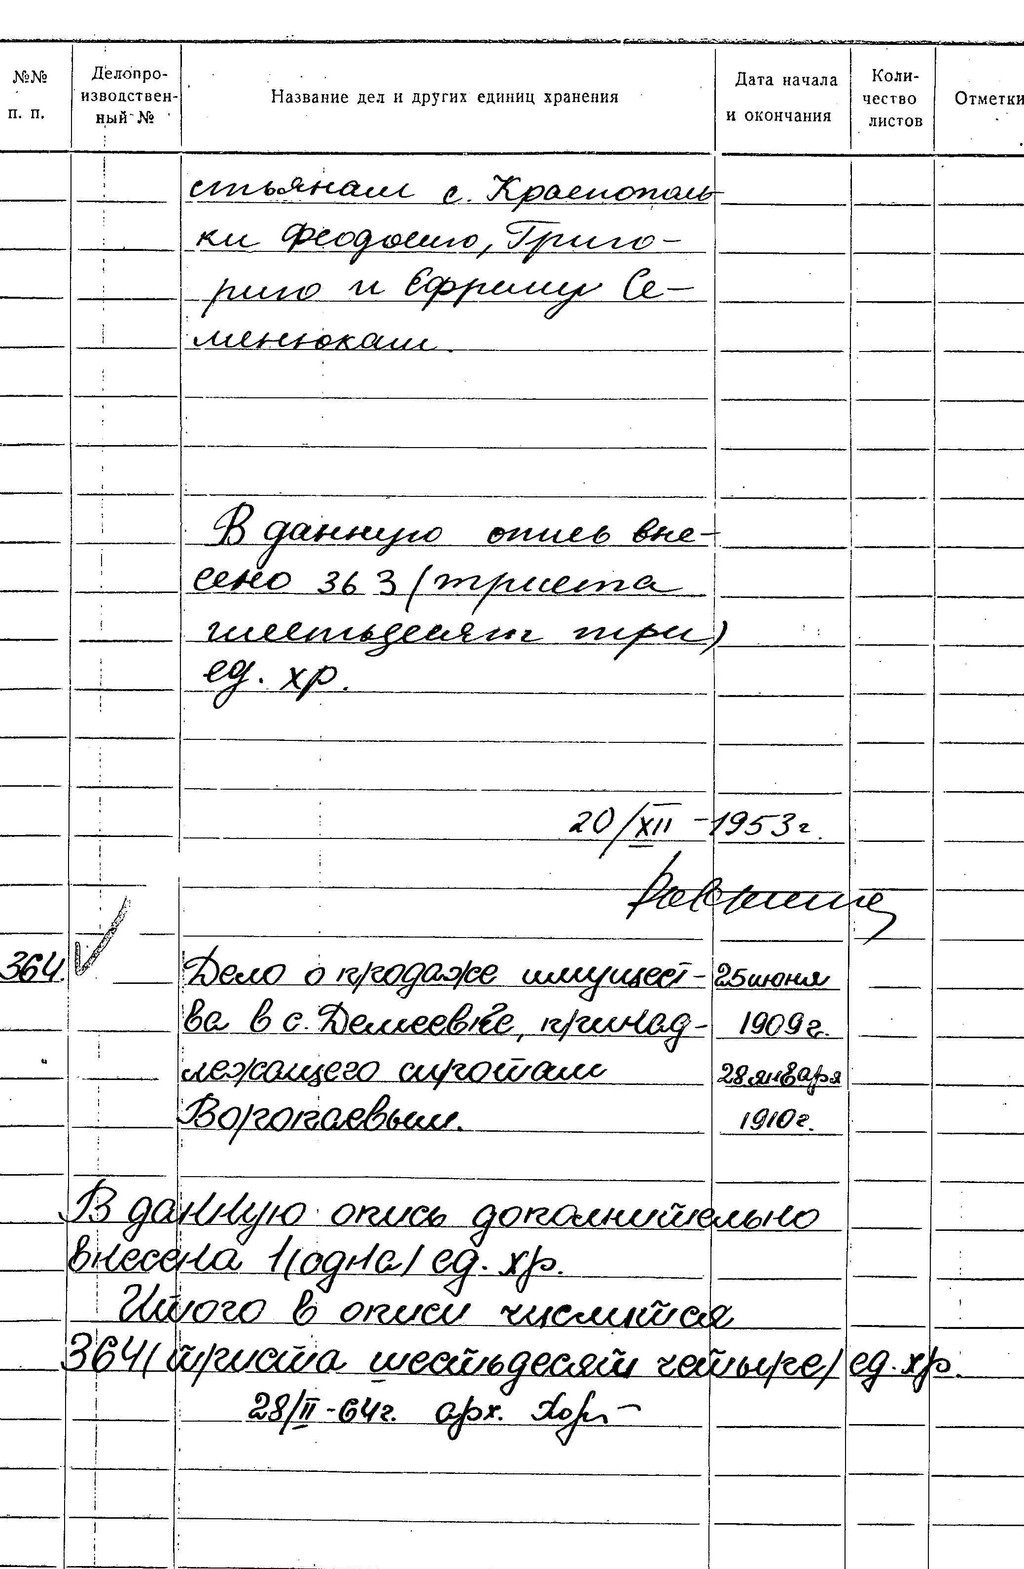 №№ п. п.
Делопро-
изводствен-
ный №
Название дел и других единиц хранения
Дата начала
и окончания
Коли-
чество
листов
Отметки
стьянам с. Краснополь-
ки Феодосию, Григо-
рию и Ефрему Се-
менюкам.
В данную опись вне-
сено 363 (триста
шестьдесят три)
ед. хр.
20/XII - 1953 г.
364. Дело о продаже имущест- 25 июня
ва в с. Демеевке, принад- 1909 г.
лежащего сиротам 28 января
Воропаевым. 1910 г.
В данную опись дополнительно
внесена 1 (одна) ед. хр.
Итого в описи числится
364 (триста шестьдесят четыре) ед. хр.
28/II - 64 г. арх.